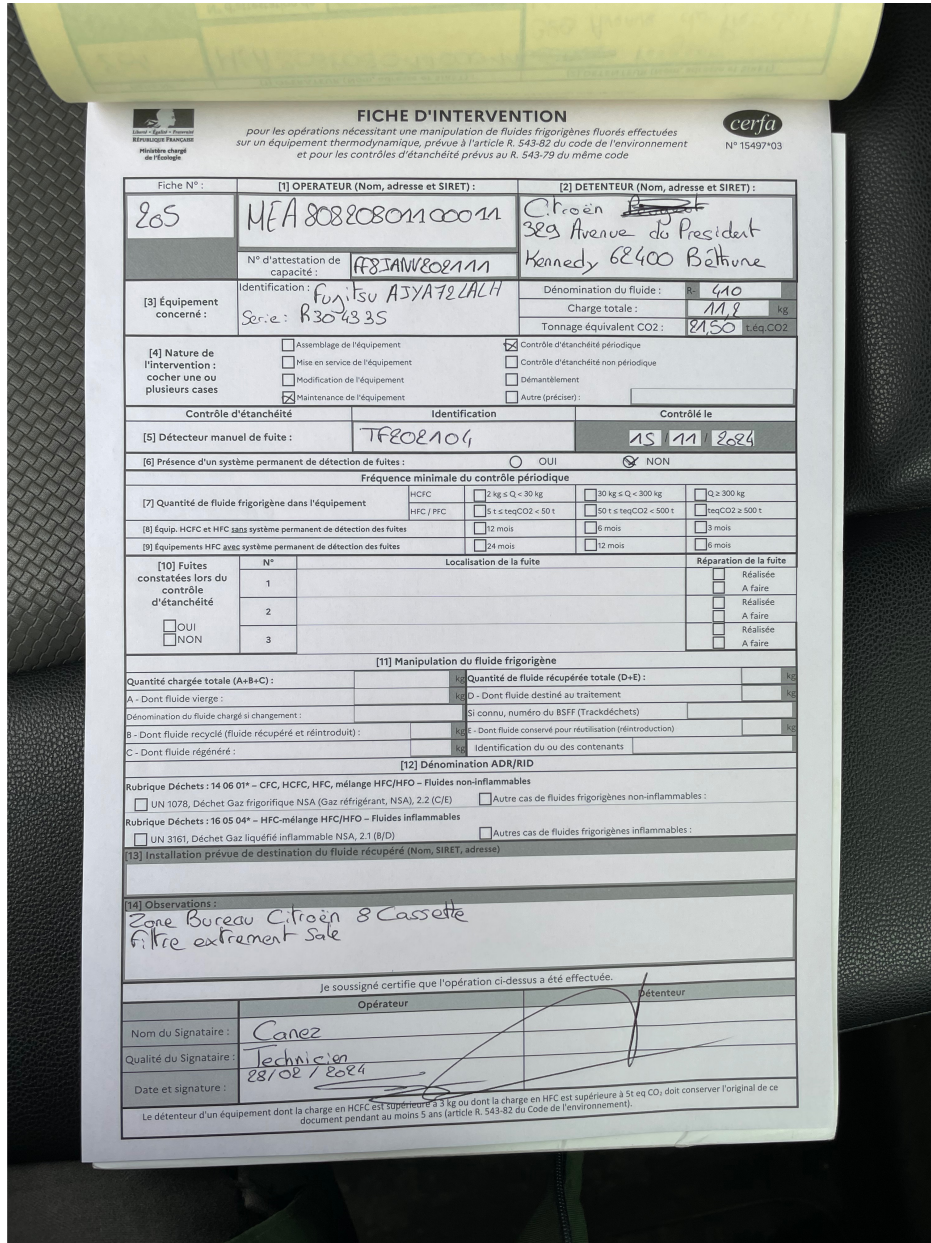 Liberté • Égalité • Fraternité
RÉPUBLIQUE FRANÇAISE
Ministère chargé
de l'Écologie
FICHE D'INTERVENTION
pour les opérations nécessitant une manipulation de fluides frigorigènes fluorés effectuées
sur un équipement thermodynamique, prévue à l'article R. 543-82 du code de l'environnement
et pour les contrôles d'étanchéité prévus au R. 543-79 du même code
cerfa
N° 15497*03
Fiche N° :
205
[1] OPERATEUR (Nom, adresse et SIRET) :
MEA 80820801100011
N° d'attestation de
capacité :
[2] DETENTEUR (Nom, adresse et SIRET) :
Citroën
329 Avenue du President
Kennedy 62400 Béthune
[3] Équipement
concerné :
Identification : Fujitsu AJYA72LALH
Serie: R304335
Dénomination du fluide : R- 410
Charge totale : 11,2 kg
Tonnage équivalent CO2 : 21,50 t.éq.CO2
[4] Nature de
l'intervention :
cocher une ou
plusieurs cases
Assemblage de l'équipement
Mise en service de l'équipement
Modification de l'équipement
Maintenance de l'équipement
Contrôle d'étanchéité périodique
Contrôle d'étanchéité non périodique
Démantèlement
Autre (préciser) :
Contrôle d'étanchéité Identification Contrôlé le
[5] Détecteur manuel de fuite : TF202104 15 / 11 / 2024
[6] Présence d'un système permanent de détection de fuites : OUI NON
Fréquence minimale du contrôle périodique
[7] Quantité de fluide frigorigène dans l'équipement
HCFC 2 kg ≤ Q < 30 kg 30 kg ≤ Q < 300 kg Q ≥ 300 kg
HFC / PFC 5 t ≤ teqCO2 < 50 t 50 t ≤ teqCO2 < 500 t teqCO2 ≥ 500 t
[8] Équip. HCFC et HFC sans système permanent de détection des fuites 12 mois 6 mois 3 mois
[9] Équipements HFC avec système permanent de détection des fuites 24 mois 12 mois 6 mois
[10] Fuites
constatées lors du
contrôle
d'étanchéité
OUI
NON
N° Localisation de la fuite Réparation de la fuite
1 Réalisée
A faire
2 Réalisée
A faire
3 Réalisée
A faire
[11] Manipulation du fluide frigorigène
Quantité chargée totale (A+B+C) : kg Quantité de fluide récupérée totale (D+E) : kg
A - Dont fluide vierge : kg D - Dont fluide destiné au traitement kg
Dénomination du fluide chargé si changement : Si connu, numéro du BSFF (Trackdéchets)
B - Dont fluide recyclé (fluide récupéré et réintroduit) : kg E - Dont fluide conservé pour réutilisation (réintroduction) kg
C - Dont fluide régénéré : kg Identification du ou des contenants
[12] Dénomination ADR/RID
Rubrique Déchets : 14 06 01* – CFC, HCFC, HFC, mélange HFC/HFO – Fluides non-inflammables
UN 1078, Déchet Gaz frigorifique NSA (Gaz réfrigérant, NSA), 2.2 (C/E) Autre cas de fluides frigorigènes non-inflammables :
Rubrique Déchets : 16 05 04* – HFC-mélange HFC/HFO – Fluides inflammables
UN 3161, Déchet Gaz liquéfié inflammable NSA, 2.1 (B/D) Autres cas de fluides frigorigènes inflammables :
[13] Installation prévue de destination du fluide récupéré (Nom, SIRET, adresse)
[14] Observations :
Zone Bureau Citroën 8 Cassette
Filtre extrement Sale
Je soussigné certifie que l'opération ci-dessus a été effectuée.
Opérateur Détenteur
Nom du Signataire : Canez
Qualité du Signataire : Technicien
Date et signature : 28/02/2024
Le détenteur d'un équipement dont la charge en HCFC est supérieure à 3 kg ou dont la charge en HFC est supérieure à 5t eq CO₂ doit conserver l'original de ce
document pendant au moins 5 ans (article R. 543-82 du Code de l'environnement).